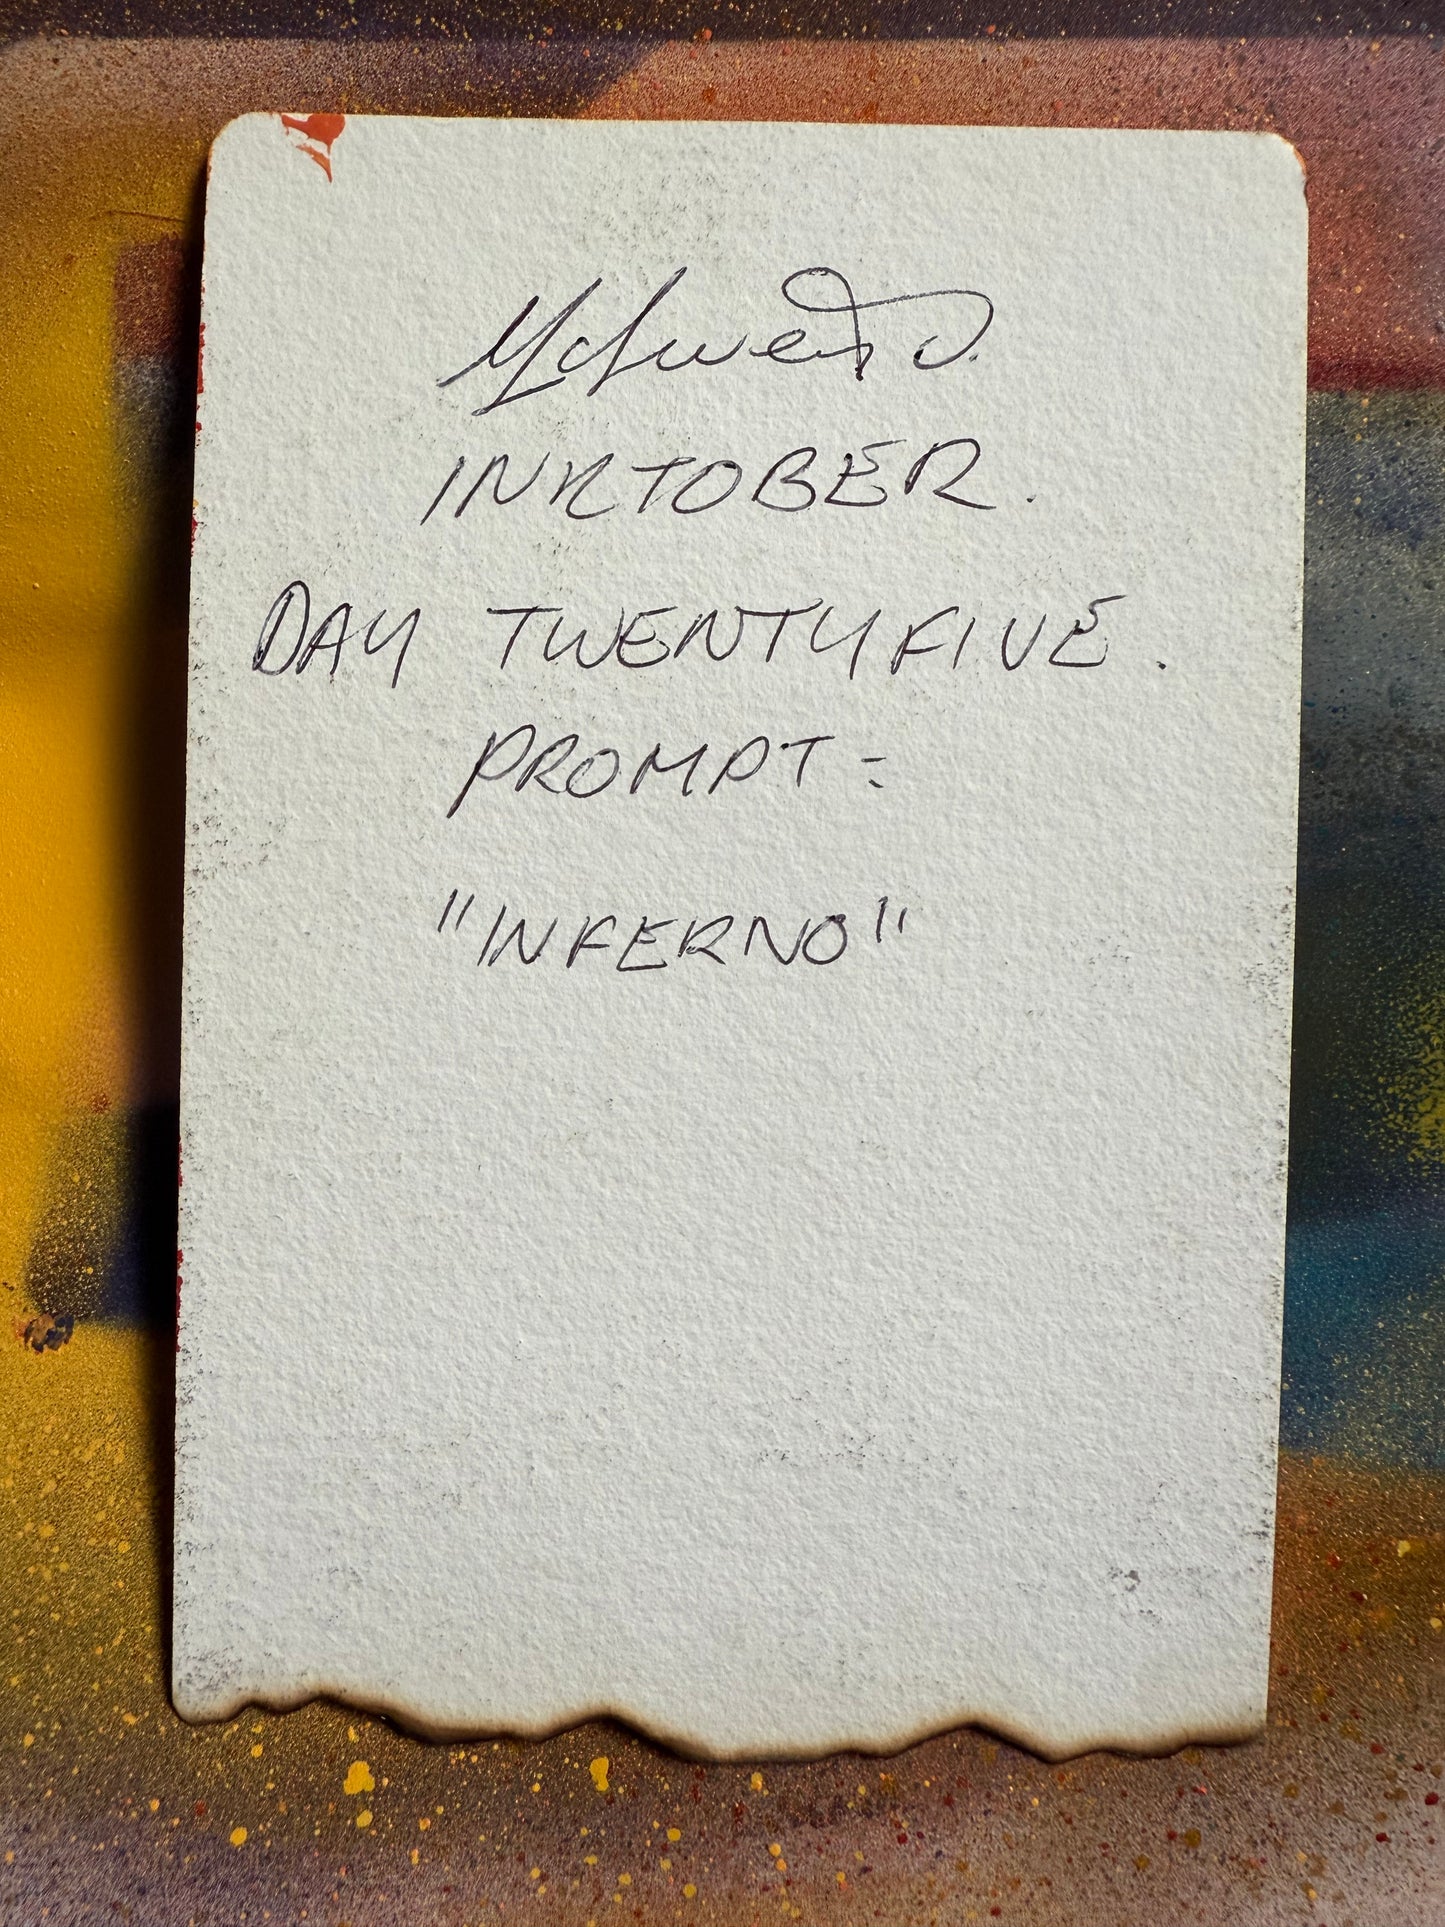 INKTOBER.
DAY TWENTYFIVE.
PROMPT =
"INFERNO"